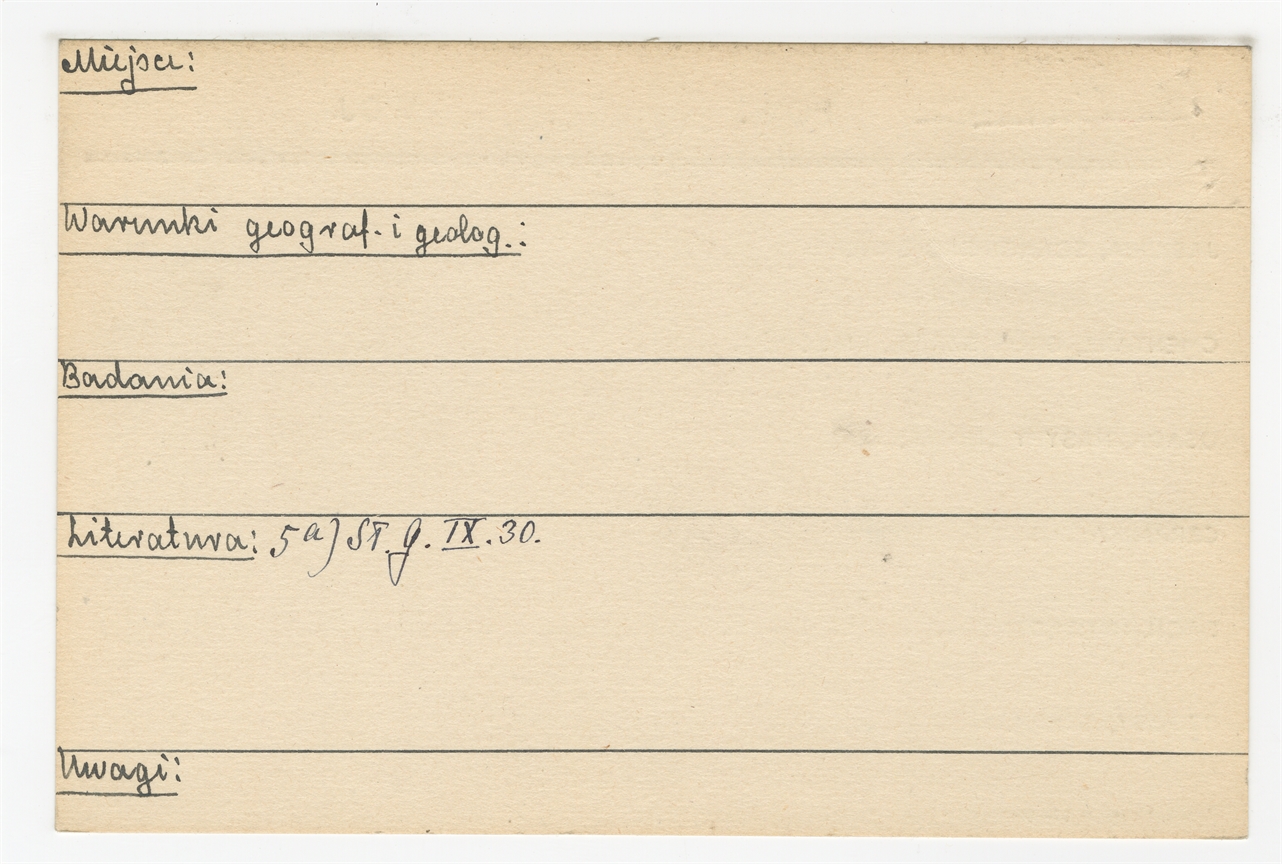 Miejsce:
Warunki geograf. i geolog.:
Badania:
Literatura: 5a) ST. g. IX. 30.
Uwagi: